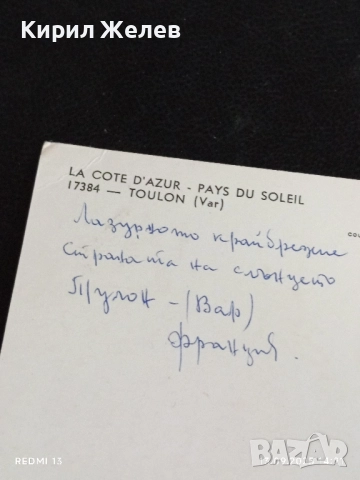 Кирил Желев
LA COTE D'AZUR - PAYS DU SOLEIL
17384 — TOULON (Var)
Лазурното крайбрежие
страната на слънцето
Тулон - (Вар)
Франция.
REDMI 13
BAZAR